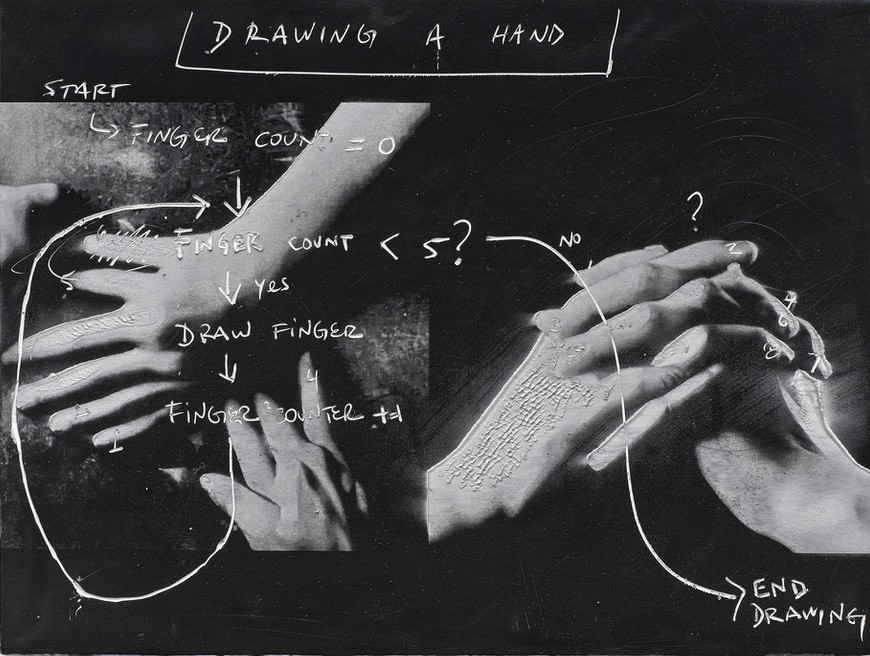 DRAWING A HAND
START
FINGER COUNT = 0
FINGER COUNT < 5?
NO
?
yes
DRAW FINGER
FINGER COUNTER +1
END
DRAWING
1
4
5
1
2
3
4
6
7
8